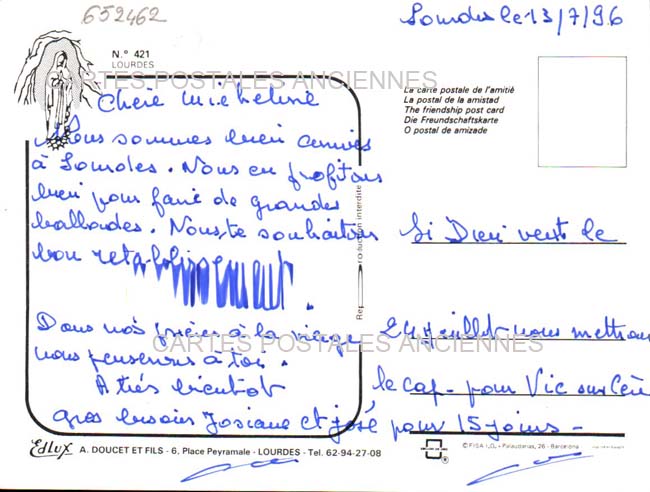 652462
Lourdes le 13/7/96
N.º 421
LOURDES
CARTES POSTALES ANCIENNES
La carte postale de l'amitié
La postal de la amistad
The friendship post card
Die Freundschaftskarte
O postal de amizade
Chère Micheline
Nous sommes bien arrivés
à Lourdes. Nous en profitons
bien pour faire de grandes
ballades. Nous te souhaitons
bon
Reproduction interdite
Dans nos prières à la vierge
nous penserons à toi.
A très bientôt
gros baisers Josiane et josé
Si Dieu veut le
24 juillet nous mettrons
le cap pour Vic sur Cère
pour 15 jours -
CARTES POSTALES ANCIENNES
Edlux A. DOUCET ET FILS - 6, Place Peyramale - LOURDES - Tel. 62-94-27-08
© FISA I.G. - Palaudarias, 26 - Barcelona